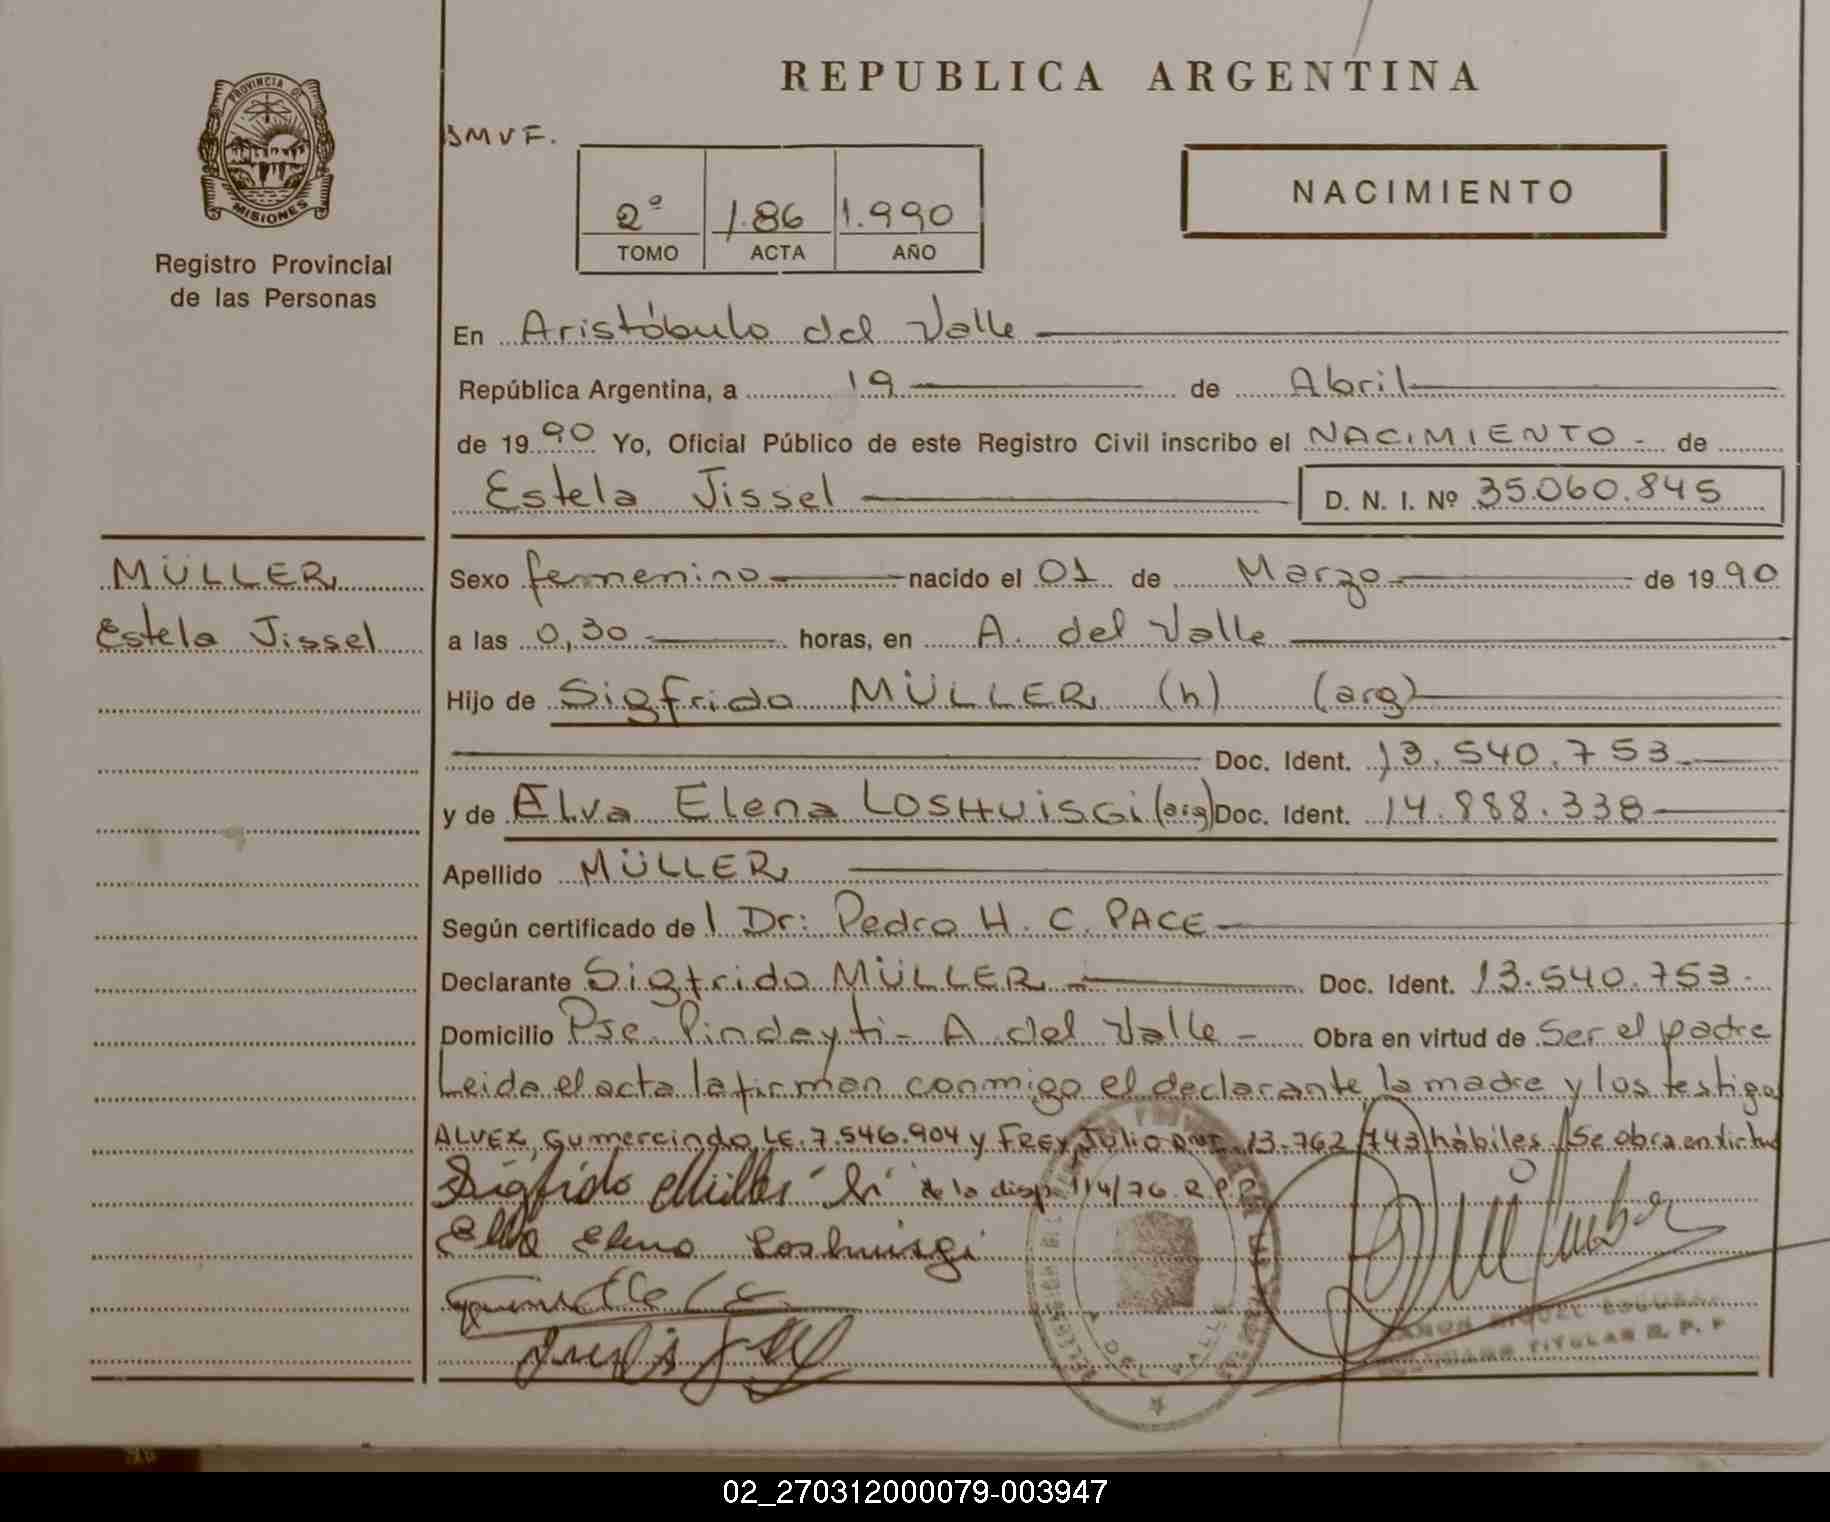 REPUBLICA ARGENTINA
PROVINCIA DE
MISIONES
Registro Provincial
de las Personas
SMVF.
2º 1.86 1.990
TOMO ACTA AÑO
NACIMIENTO
En Aristóbulo del Valle
República Argentina, a 19 de Abril
de 1990 Yo, Oficial Público de este Registro Civil inscribo el NACIMIENTO - de
Estela Jissel D. N. I. Nº 35.060.845
MÜLLER
Estela Jissel
Sexo femenino nacido el 01 de Marzo de 1990
a las 0,30 horas, en A. del Valle
Hijo de Sigfrido MÜLLER (h) (arg)
Doc. Ident. 13.540.753
y de Elva Elena LOSHUISGI (arg) Doc. Ident. 14.888.338
Apellido MÜLLER
Según certificado de l Dr: Pedro H. C. PACE
Declarante Sigfrido MÜLLER Doc. Ident. 13.540.753.
Domicilio Pje. Pindayti - A. del Valle - Obra en virtud de Ser el padre
Leida el acta la firman conmigo el declarante, la madre y los testigos
ALVEZ, Gumercindo, LE. 7.546.904 y FREY, Julio 13.762.743 hábiles. Se obra en virtud
Sigfrido Müller "h" de la disp. 114/76. R.P.P.
Elva Elena Loshuisgi
A. DEL VALLE
TITULAR R. P. P.
02_270312000079-003947